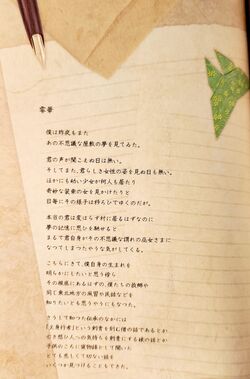 零華
僕は昨夜もまた
あの不思議な屋敷の夢を見てみた。
君の声が聞こえぬ日は無い。
そしてまた、君らしき女性の姿を見ぬ日も無い。
ほかにも幼い少女が何人も居たり
奇妙な装束の女を見かけたりと
日毎にその様子は移ろひてゆくのだが。
本当の君は変はらず村に居るはずなのに
夢の記憶に思ひを馳せると
まるで君自身が今の不思議な謂れの巫女さまに
なつてしまつたやうな気がしてくる。
こちらにきて、僕自身の生まれを
明らかにしたいと思う傍ら
その根底にあるはずの、僕たちの故郷や
同じ東北地方の風習や民話などを
知りたいとも思うやうにもなつた。
さうして知つた伝承のなかには
という刺青を刻む僧の話であるとか
引き想ひ人への気持ちを刺青にする嫁の話とか
子供のころに寝物語として聞いた
とても悲しくて切ない話を
いくつか見つけることもできた。